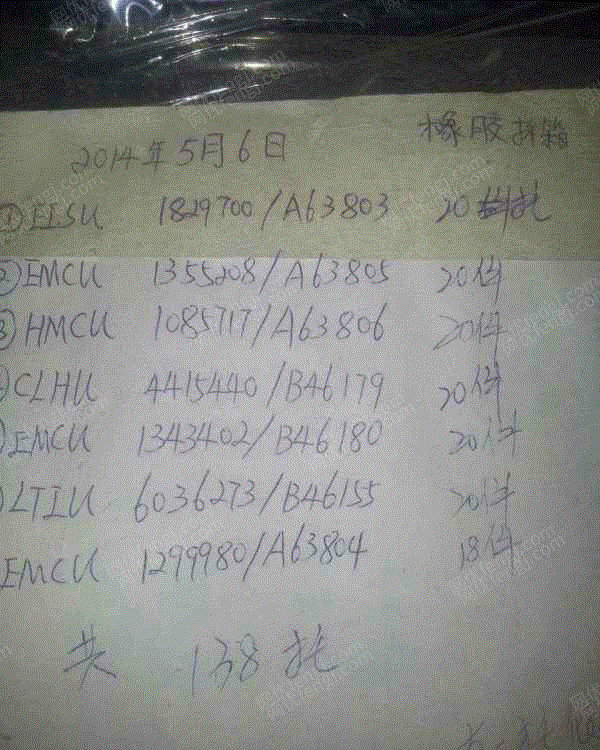 橡胶拆箱
2014年5月6日
①EISU 1829700/A63803 20托
②EMCU 1355208/A63805 20件
③HMCU 1085717/A63806 20件
CLHU 4415440/B46179 20件
EMCU 1343402/B46180 20件
LTIU 6036273/B46155 20件
EMCU 1299980/A63804 18件
共 138托